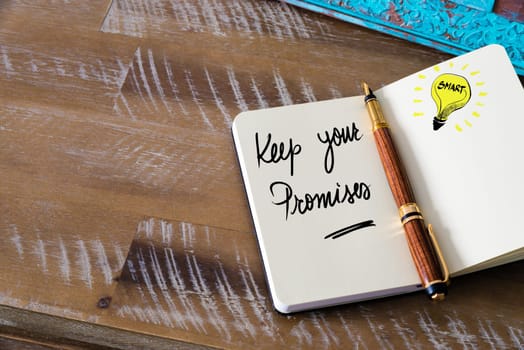 Keep your
Promises
SMART